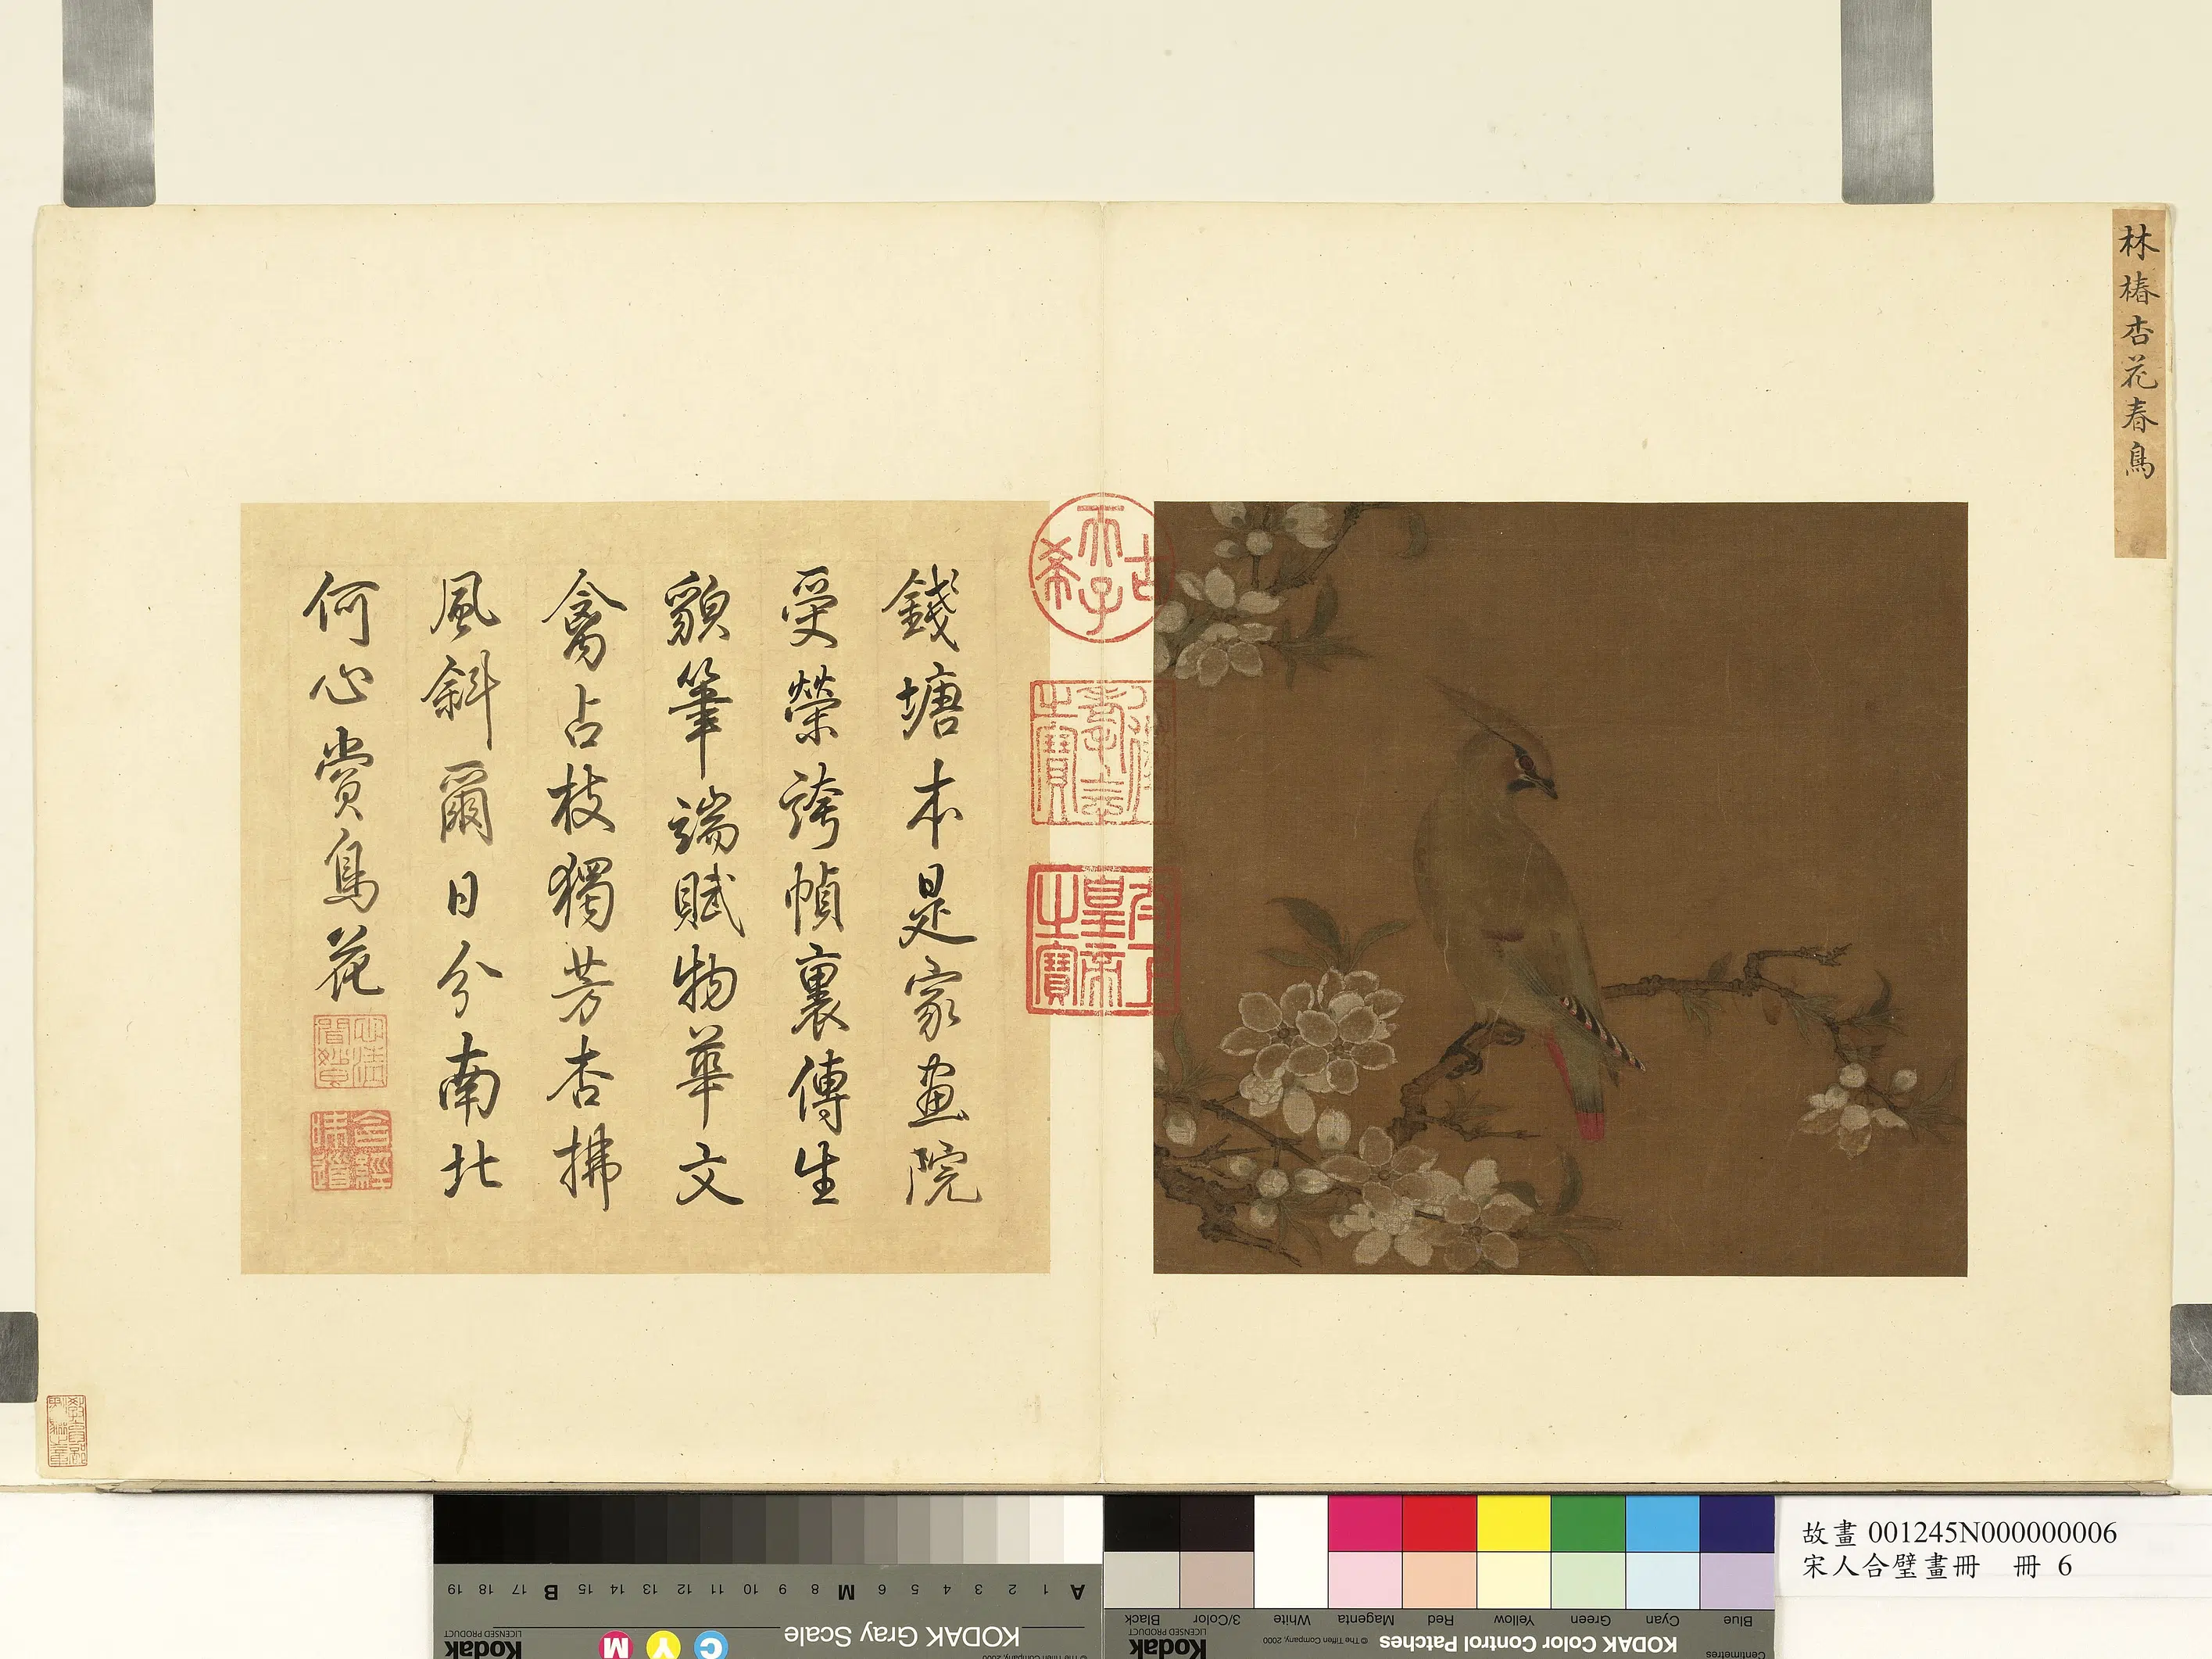 林椿杏花春鳥
古希
天子
壽
之寶
皇帝
之寶
錢塘本是家畫院
受榮誇幀裏傳生
貌筆端賦物華文
禽占枝獨芳杏拂
風斜爾日分南北
何心賞鳥花
故畫 001245N000000006
宋人合璧畫冊 冊 6
A 1 2 3 4 5 6 M 8 9 10 11 12 13 14 15 B 17 18 19
KODAK Gray Scale
C Y M
Kodak
LICENSED PRODUCT
Blue Cyan Green Yellow Red Magenta White 3/Color Black
KODAK Color Control Patches
© The Tiffen Company, 2000
Kodak
LICENSED PRODUCT
Centimetres